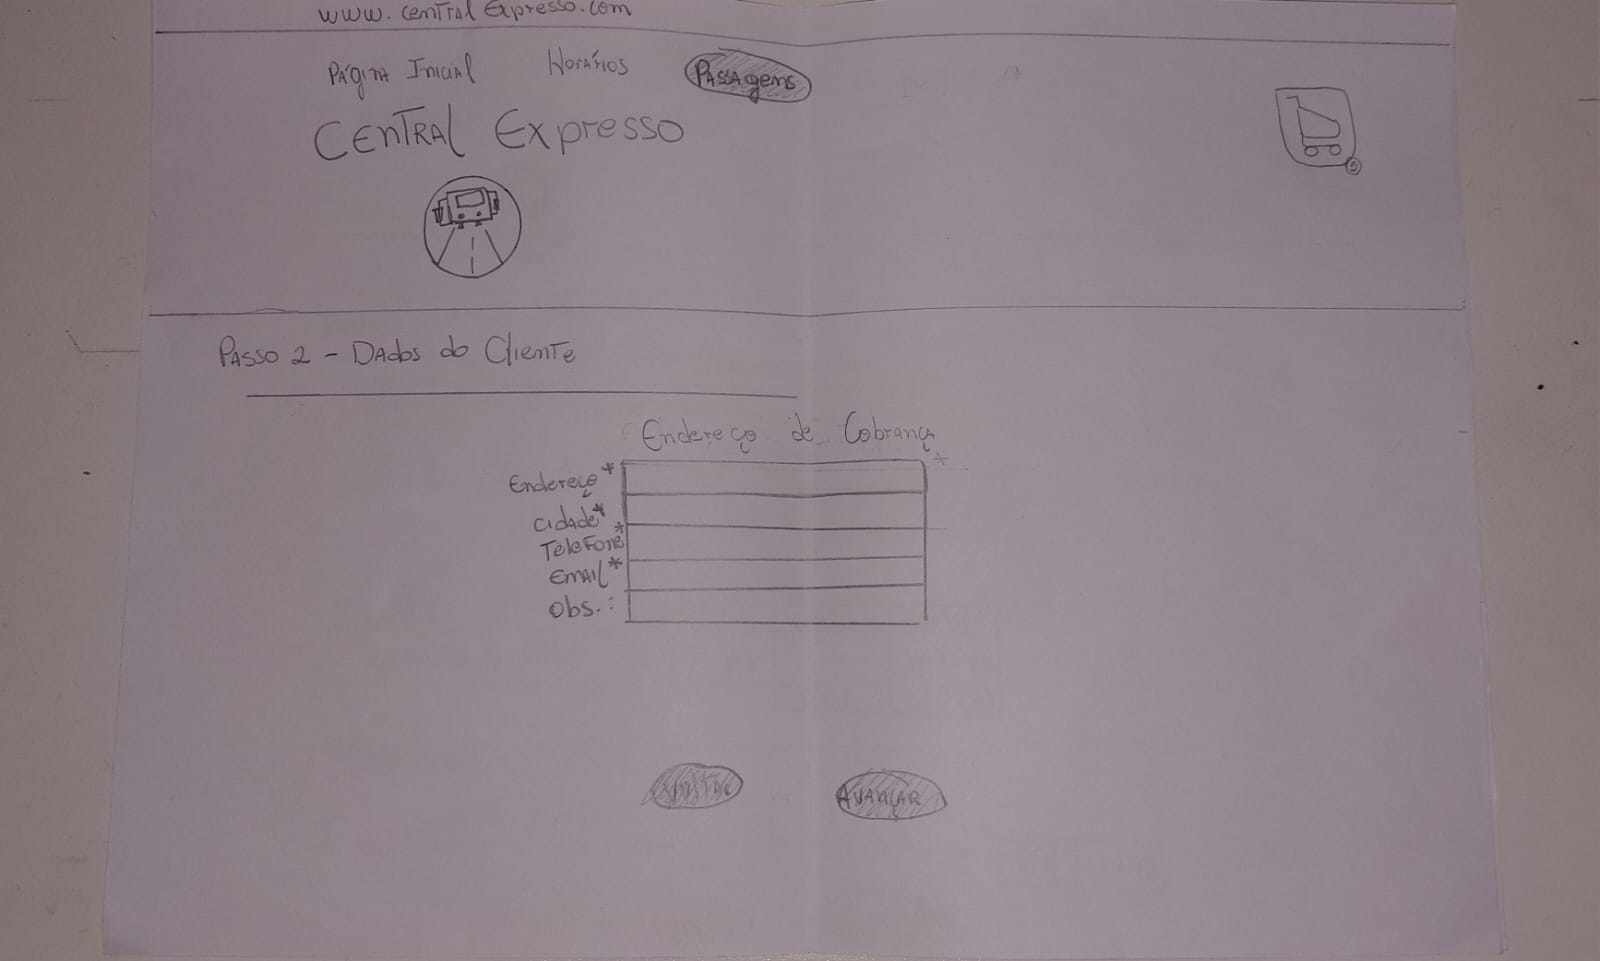 www.centralExpresso.com
Página Inicial Horários Passagens
Central Expresso
Passo 2 - Dados do Cliente
Endereço de Cobrança
*
Endereço*
Cidade*
Telefone*
Email*
Obs.:
Avançar